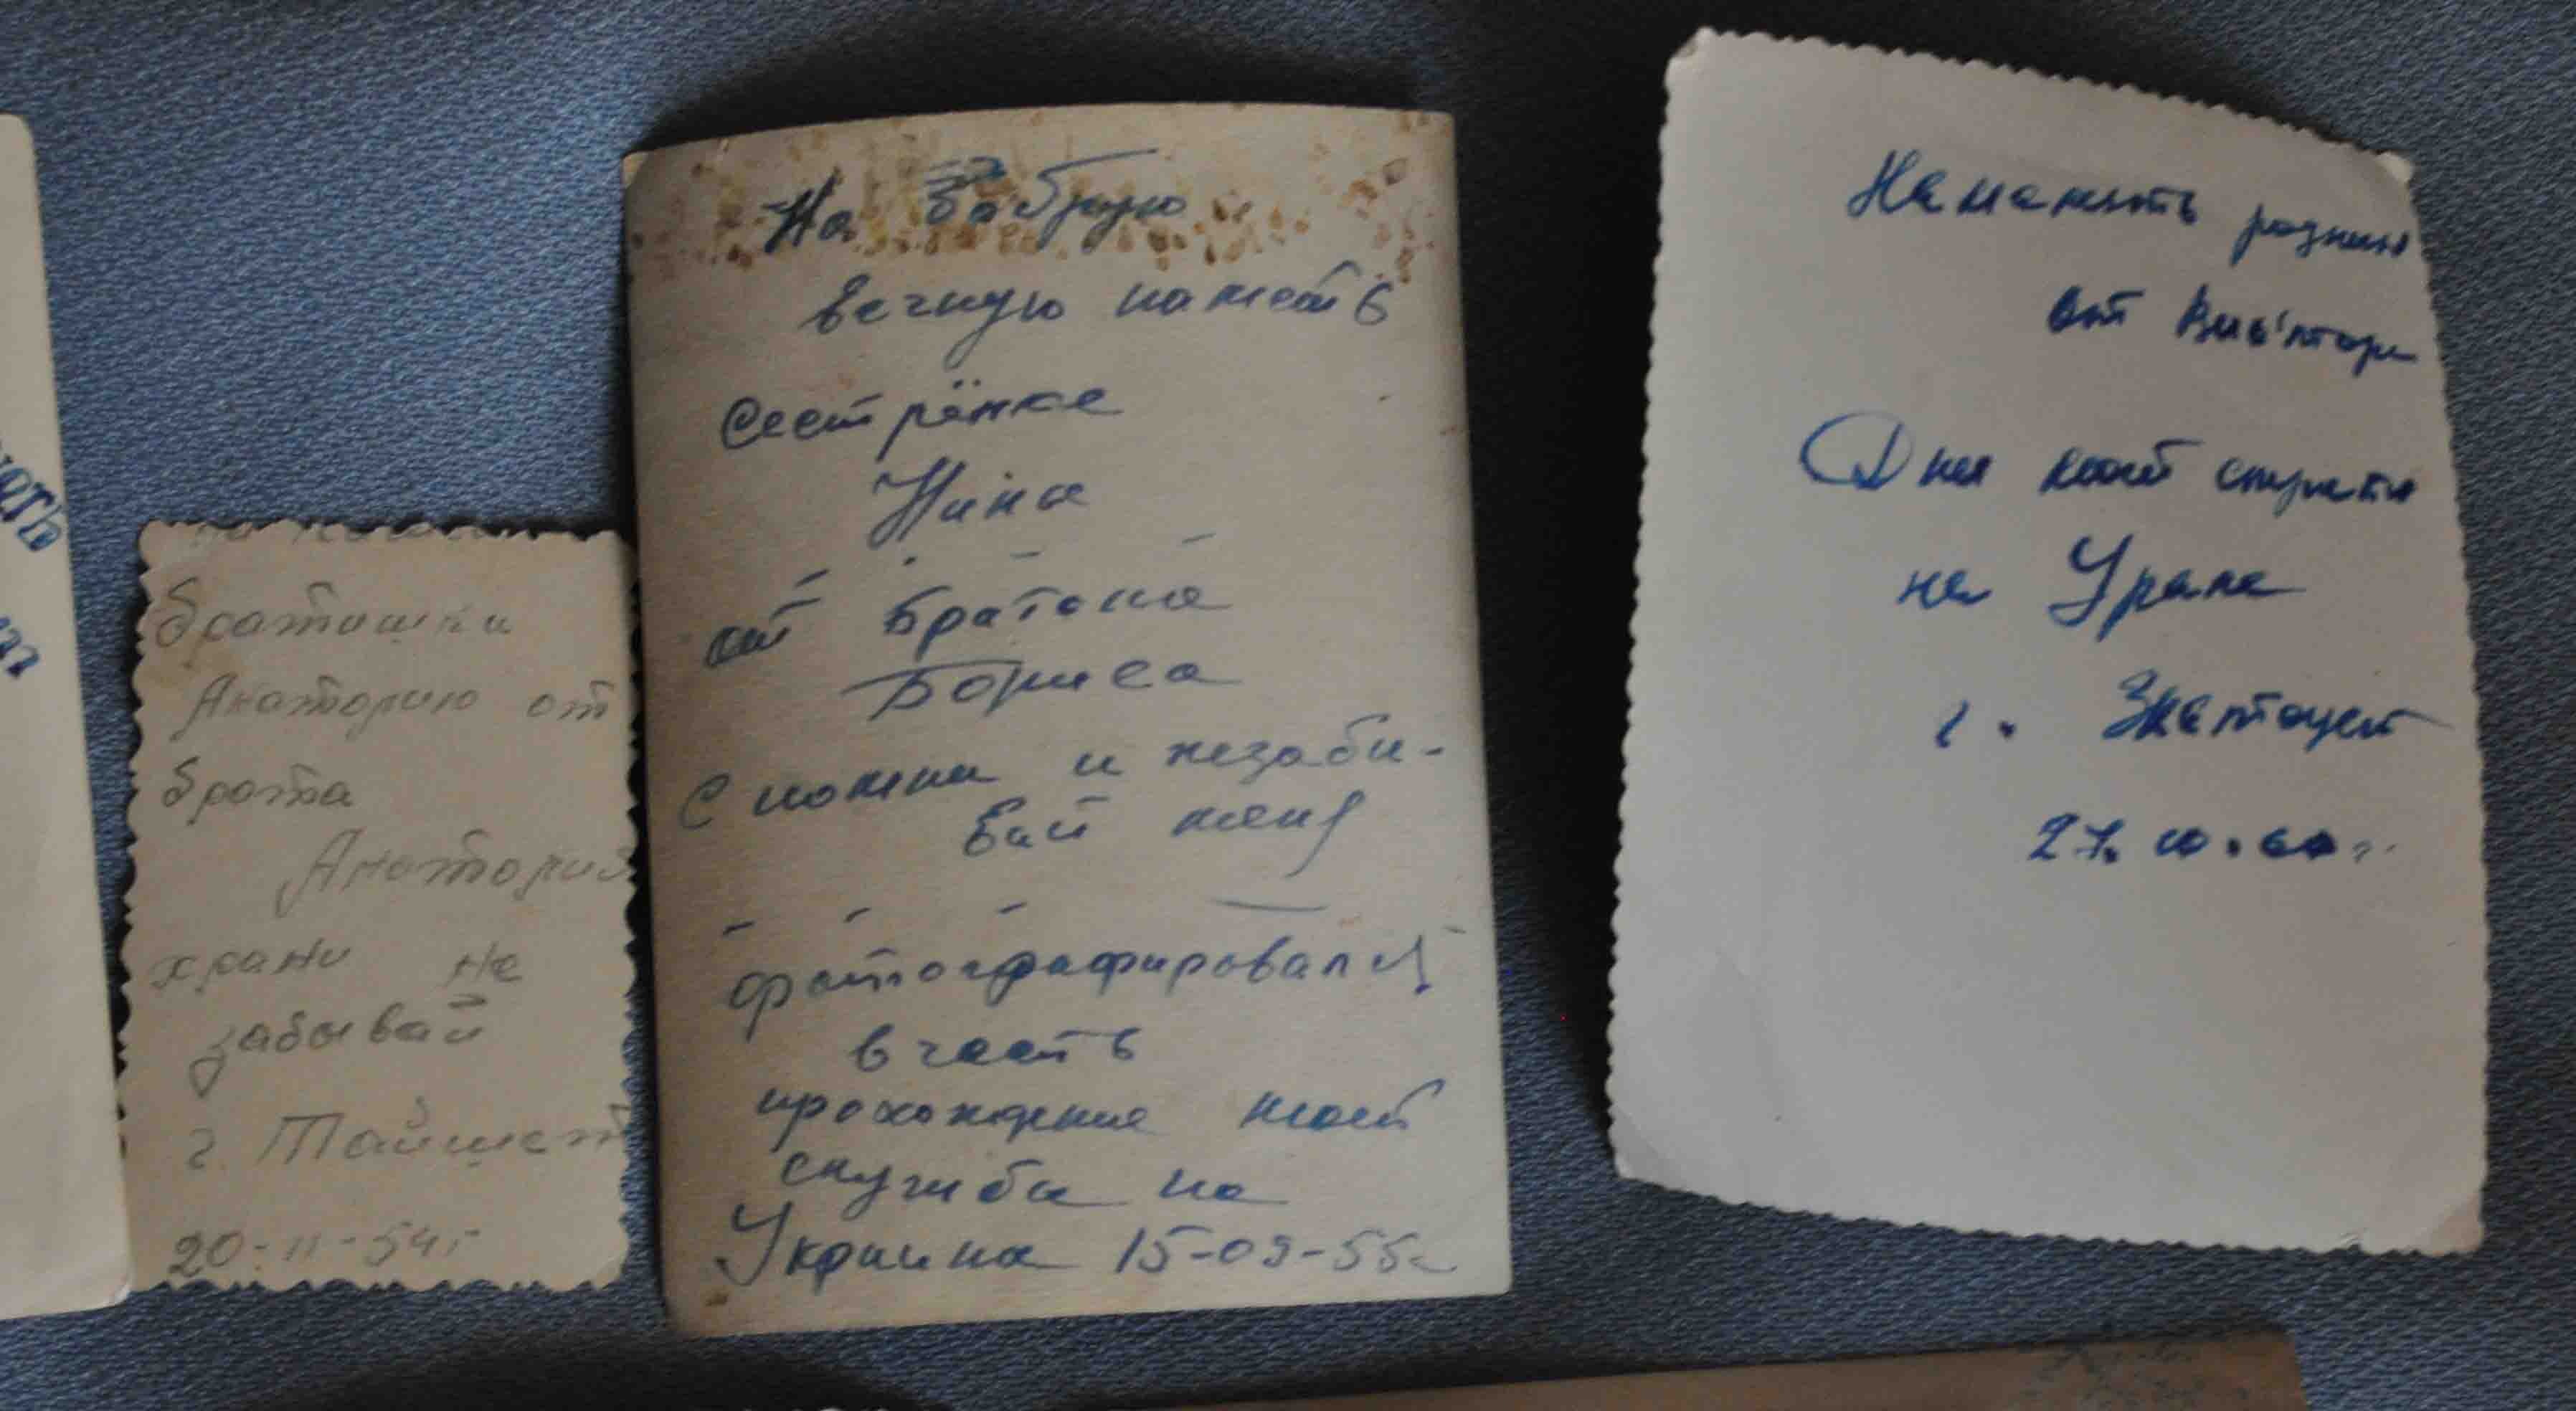 братишки
Анаторию от
брата
Анаторий
храни не
забывай
г. Тайшет
20-11-54г
На добрую
вечную паметь
Сестрёнке
Нине
от Братона
Бориса
Спомни и незабы-
вай меня
фотографировался
в честь
прохождение моей
службы на
Украина 15-09-55г
На память родным
от Виктора
Дни моей службы
на Урале
г. Златоуст
27.10.60г.